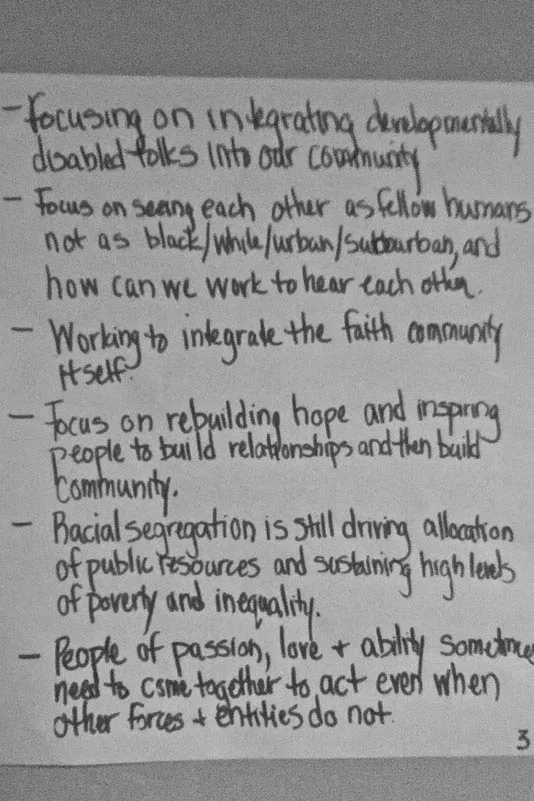 - Focusing on integrating developmentally
disabled folks into our community
- Focus on seeing each other as fellow humans
not as black/white/urban/suburban, and
how can we work to hear each other.
- Working to integrate the faith community
itself.
- Focus on rebuilding hope and inspiring
people to build relationships and then build
community.
- Racial segregation is still driving allocation
of public resources and sustaining high levels
of poverty and inequality.
- People of passion, love + ability sometimes
need to come together to act even when
other forces + entities do not.
3